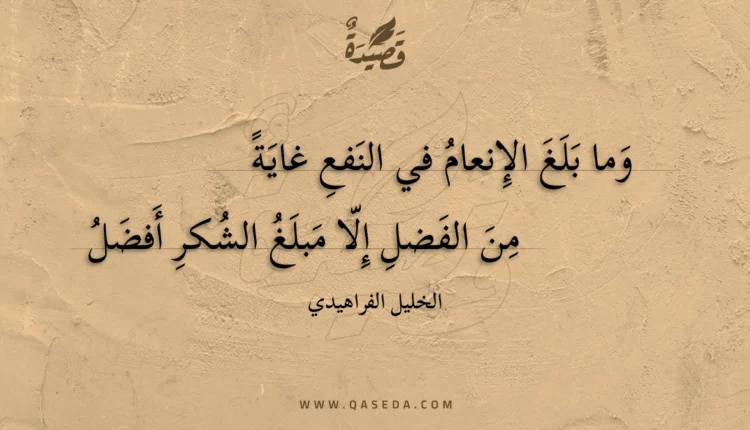 قَصِيدَةٌ
وَما بَلَغَ الإِنعامُ في النَفعِ غايَةً
مِنَ الفَضلِ إِلّا مَبلَغُ الشُكرِ أَفضَلُ
الخليل الفراهيدي
WWW.QASEDA.COM